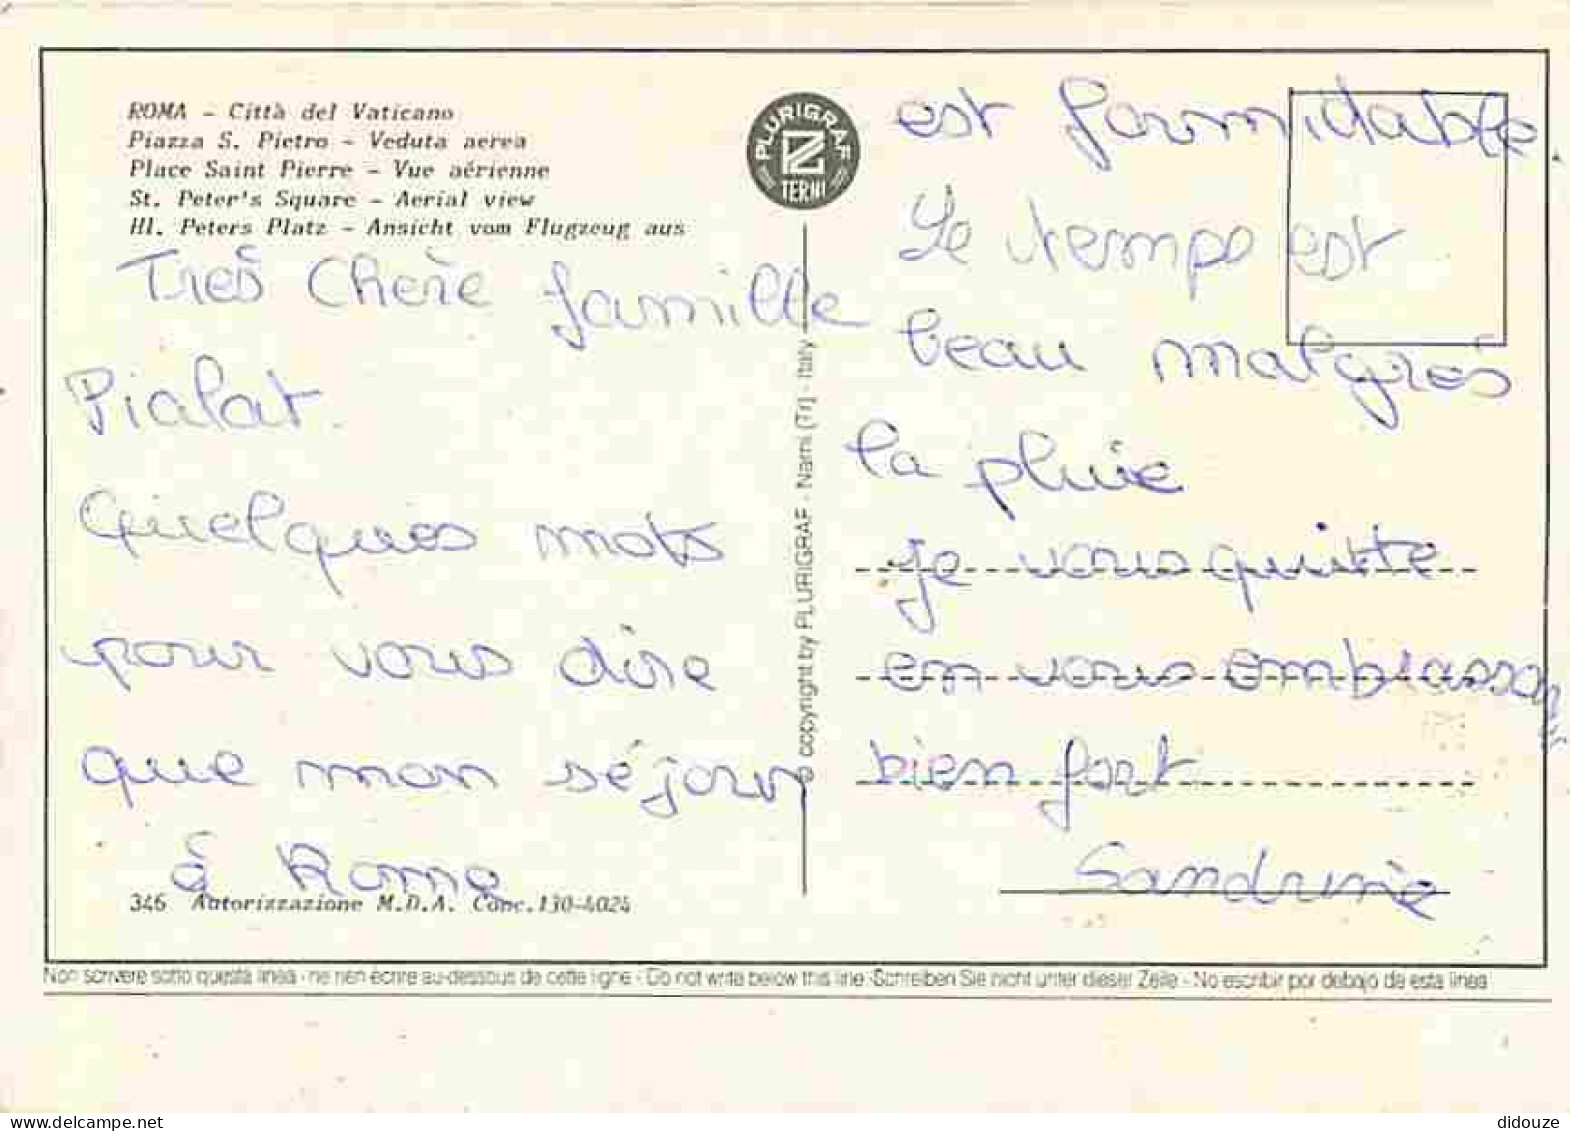 ROMA - Città del Vaticano
Piazza S. Pietro - Veduta aerea
Place Saint Pierre - Vue aérienne
St. Peter's Square - Aerial view
Hl. Peters Platz - Ansicht vom Flugzeug aus
Très Chère famille
Pialat.
Quelques mots
pour vous dire
que mon séjour
á Rome
346 Autorizzazione M.D.A. Conc.130-4024
PLURIGRAF
TERNI
© copyright by PLURIGRAF - Narni (Tr) - Italy
est formidable
Le temps est
beau malgrés
la pluie
je vous quitte
en vous embrassant
bien fort
Sandrine
Non scrivere sotto questa linea - ne rien écrire au-dessous de cette ligne - Do not write below this line - Schreiben Sie nicht unter dieser Zeile - No escribir por debajo de esta linea
www.delcampe.net
didouze